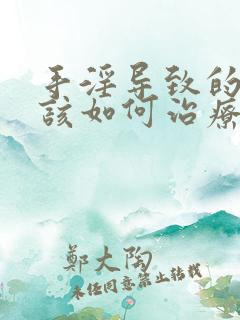 手淫导致的
该如何治療
鄭大陶
未经同意禁止转载